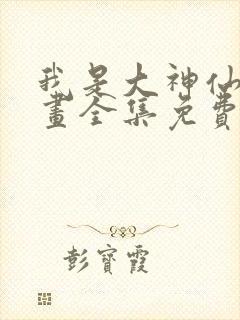 我是大神仙
畫全集免費
彭寶霞